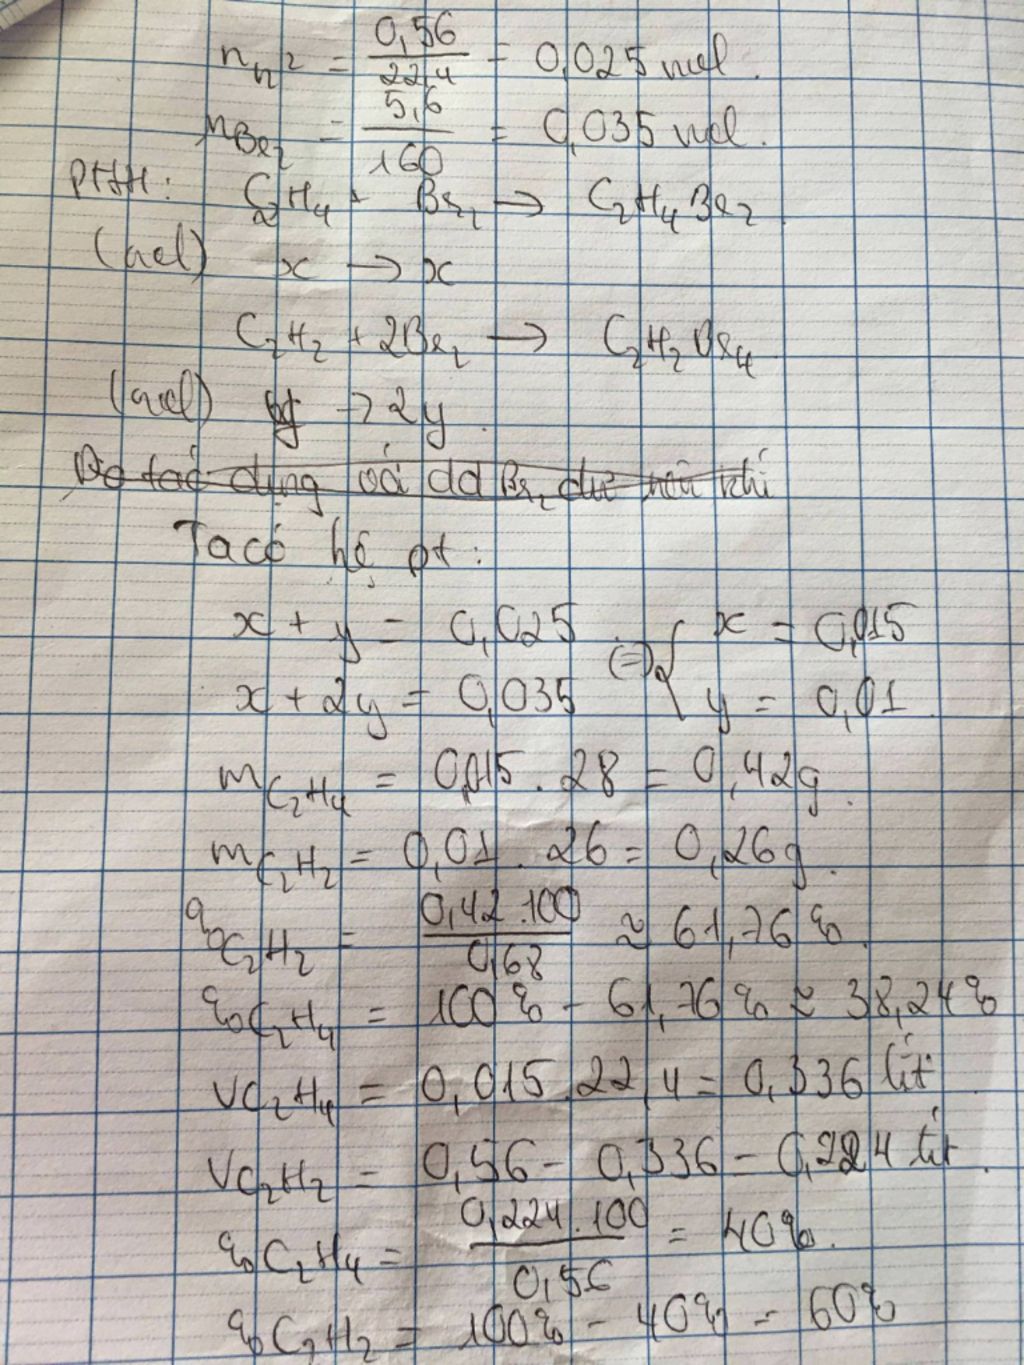 n_h² = 0,56/22,4 = 0,025 mol.
n_Br₂ = 5,6/160 = 0,035 mol.
PTHH: C₂H₄ + Br₂ → C₂H₄Br₂
(mol) x → x
C₂H₂ + 2Br₂ → C₂H₂Br₄
(mol) y → 2y.
Do tác dụng với dd Br₂ dư nên khí
Ta có hệ pt:
x + y = 0,025 (=) { x = 0,015
x + 2y = 0,035 y = 0,01.
m_C₂H₄ = 0,015 . 28 = 0,42g.
m_C₂H₂ = 0,01 . 26 = 0,26g.
%C₂H₂ = 0,42.100/0,68 ≈ 61,76%.
%C₂H₄ = 100% - 61,76% ≈ 38,24%
VC₂H₄ = 0,015.22,4 = 0,336 lít
VC₂H₂ = 0,56 - 0,336 = 0,224 lít.
%C₂H₄ = 0,224.100/0,56 = 40%.
%C₂H₂ = 100% - 40% = 60%